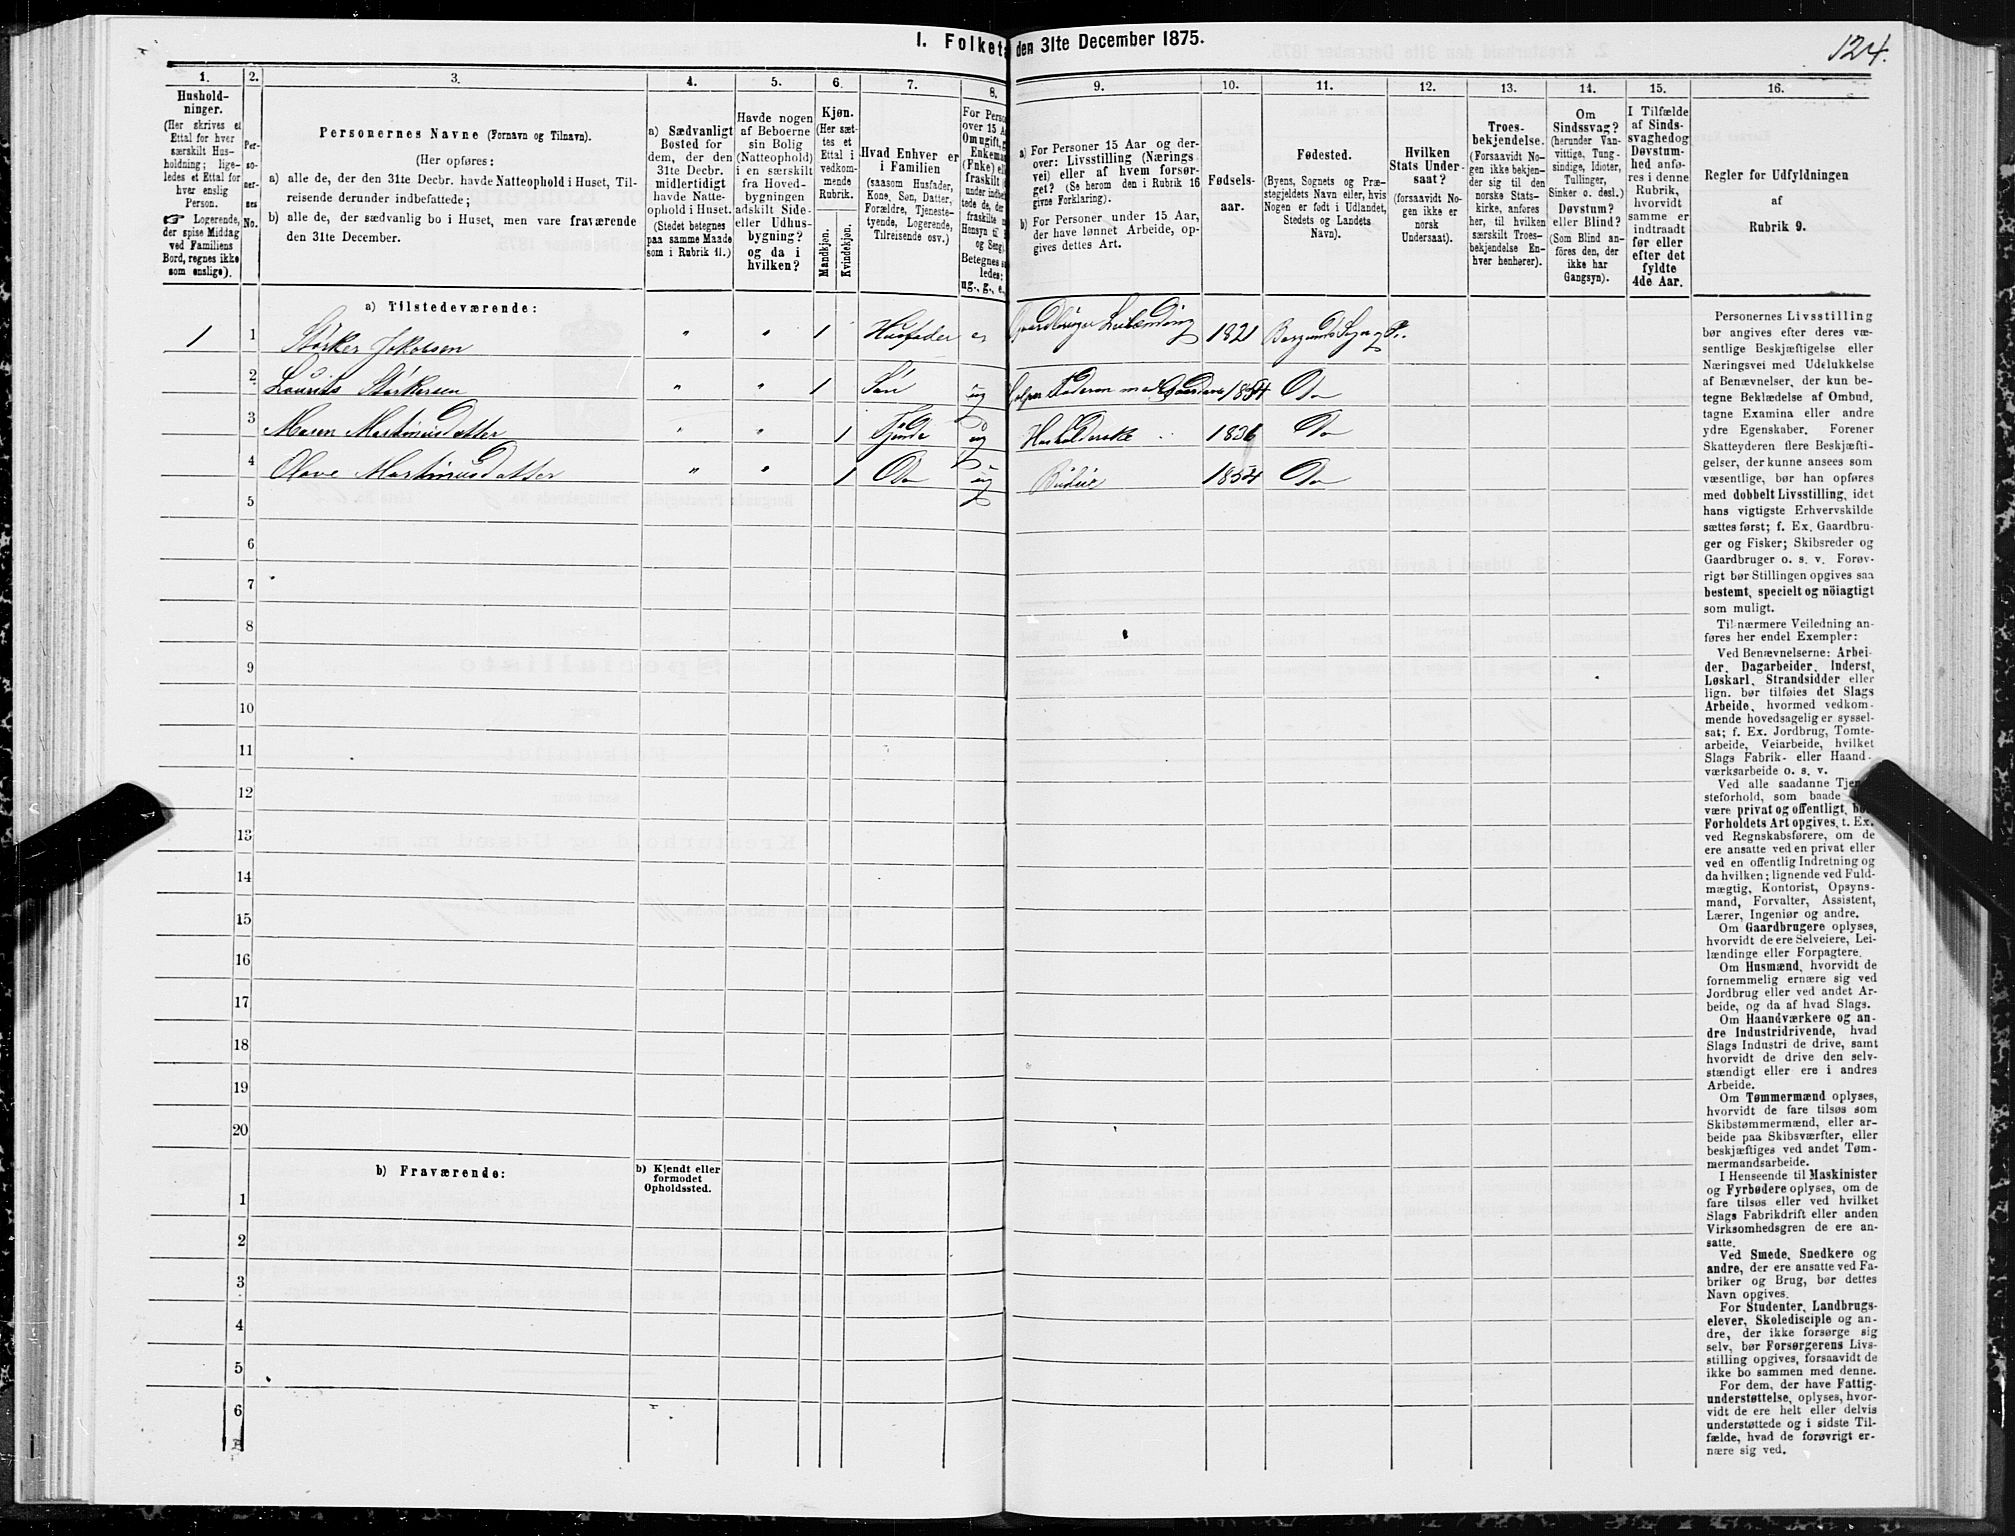 I. Folket den 31te December 1875.
124.
1.
Hushold-
ninger.
(Her skrives et
Ettal for hver
særskilt Hus-
holdning; lige-
ledes et Ettal for
hver enslig
Person.
☞ Logerende,
der spise Middag
ved Familiens
Bord, regnes ikke
som enslige).
2.
Per-
so-
ner-
nes
No.
3.
Personernes Navne (Fornavn og Tilnavn).
(Her opføres:
a) alle de, der den 31te Decbr. havde Natteophold i Huset, Til-
reisende derunder indbefattede;
b) alle de, der sædvanlig bo i Huset, men vare fraværende
den 31te December.
4.
a) Sædvanligt
Bosted for
dem, der den
31te Decbr.
midlertidigt
havde Natte-
ophold i Huset.
(Stedet betegnes
paa samme Maade
som i Rubrik 11.)
5.
Havde nogen
af Beboerne
sin Bolig
(Natteophold)
i en særskilt
fra Hoved-
bygningen
adskilt Side-
eller Udhus-
bygning?
og da i
hvilken?
6.
Kjøn.
(Her sæt-
tes et
Ettal i
vedkom-
mende
Rubrik.
Mandkjøn.
Kvindekjøn.
7.
Hvad Enhver er
i Familien
(saasom Husfader,
Kone, Søn, Datter,
Forældre, Tjeneste-
tyende, Logerende,
Tilreisende osv.)
8.
For Perso
over 15 Aa
Om ugift, g
Enkema
(Enke) el
fraskilt
under indb
tede de, der
fraskilte
Hensyn til
og Seng).
Betegnes s
ledes:
ug., g., e.
9.
a) For Personer 15 Aar og der-
over: Livsstilling (Nærings-
vei) eller af hvem forsør-
get? (Se herom den i Rubrik 16
givne Forklaring).
b) For Personer under 15 Aar,
der have lønnet Arbeide, op-
gives dettes Art.
10.
Fødsels-
aar.
11.
Fødested.
(Byens, Sognets og Præ-
stegjeldets Navn eller, hvis
Nogen er født i Udlandet,
Stedets og Landets
Navn).
12.
Hvilken
Stats Under-
saat?
(forsaavidt No-
gen ikke er
norsk
Undersaat).
13.
Troes-
bekjendelse.
(Forsaavidt No-
gen ikke bekjen-
der sig til den
norske Stats-
kirke, anføres
her, til hvilken
særskilt Troes-
bekjendelse En-
hver henhører).
14.
Om
Sindssvag?
(herunder Van-
vittige, Tung-
sindige, Idioter,
Tullinger,
Sinker o. desl.)
Døvstum?
eller Blind?
(Som Blind an-
føres den, der
ikke har
Gangsyn).
15.
I Tilfælde
af Sinds-
svaghed og
Døvstum-
hed anfø-
res i denne
Rubrik,
hvorvidt
samme er
indtraadt
før eller
efter det
fyldte
4de Aar.
16.
Regler for Udfyldningen
af
Rubrik 9.
a) Tilstedeværende:
1 1 Størker Jakobsen " " 1 Husfader e Gaardbruger Leilænding 1821 Borgunds Sogn og Pr.
2 Laurits Størkersen " " 1 Søn ug hjelper Faderen med Gaarden 1854 Do
3 Maren Martinusdatter " " 1 Tjende ug Husholderske 1836 Do
4 Olave Martinusdatter " " 1 Do ug Budeie 1854 Do
5
6
7
8
9
10
11
12
13
14
15
16
17
18
19
20
b) Fraværende:
b) Kjendt eller
formodet
Opholdssted.
1
2
3
4
5
6
Personernes Livsstilling
bør angives efter deres væ-
sentlige Beskjæftigelse eller
Næringsvei med Udelukkelse
af Benævnelser, der kun be-
tegne Beklædelse af Ombud,
tagne Examina eller andre
ydre Egenskaber. Forener
Skatteyderen flere Beskjæfti-
gelser, der kunne ansees som
væsentlige, bør han opføres
med dobbelt Livsstilling, idet
hans vigtigste Erhvervskilde
sættes først; f. Ex. Gaardbru-
ger og Fisker; Skibsreder og
Gaardbruger o. s. v. Forøv-
rigt bør Stillingen opgives saa
bestemt, specielt og nöiagtigt
som muligt.
Til nærmere Veiledning an-
føres her endel Exempler:
Ved Benævnelserne: Arbei-
der, Dagarbeider, Inderst,
Løskarl, Strandsidder eller
lign. bør tilføies det Slags
Arbeide, hvormed vedkom-
mende hovedsagelig er syssel-
sat; f. Ex. Jordbrug, Tomte-
arbeide, Veiarbeide, hvilket
Slags Fabrik- eller Haand-
værksarbeide o. s. v.
Ved alle saadanne Tjene-
steforhold, som baade
være privat og offentligt, bør
Forholdets Art opgives, t. Ex.
ved Regnskabsførere, om de
ere ansatte ved en privat eller
ved en offentlig Indretning og
da hvilken; lignende ved Fuld-
mægtig, Kontorist, Opsyns-
mand, Forvalter, Assistent,
Lærer, Ingeniør og andre.
Om Gaardbrugere oplyses,
hvorvidt de ere Selveiere, Lei-
lændinge eller Forpagtere.
Om Husmænd, hvorvidt de
fornemmelig ernære sig ved
Jordbrug eller ved andet Ar-
beide, og da af hvad Slags.
Om Haandværkere og an-
dre Industridrivende, hvad
Slags Industri de drive, samt
hvorvidt de drive den selv-
stændigt eller ere i andres
Arbeide.
Om Tømmermænd oplyses,
hvorvidt de fare tilsøs som
Skibstømmermænd, eller ar-
beide paa Skibsværfter, eller
beskjæftiges ved andet Tøm-
mermandsarbeide.
I Henseende til Maskinister
og Fyrbødere oplyses, om de
fare tilsøs eller ved hvilket
Slags Fabrikdrift eller anden
Virksomhedsgren de ere an-
satte.
Ved Smede, Snedkere og
andre, der ere ansatte ved Fa-
briker og Brug, bør dettes
Navn opgives.
For Studenter, Landbrugs-
elever, Skoledisciple og an-
dre, der ikke forsørge sig
selv, bør Forsørgerens Livs-
stilling opgives, forsaavidt de
ikke bo sammen med denne.
For dem, der have Fattig-
understøttelse, oplyses, hvor-
vidt de ere helt eller delvis
understøttede og i sidste Til-
fælde, hvad de forøvrigt er-
nære sig ved.